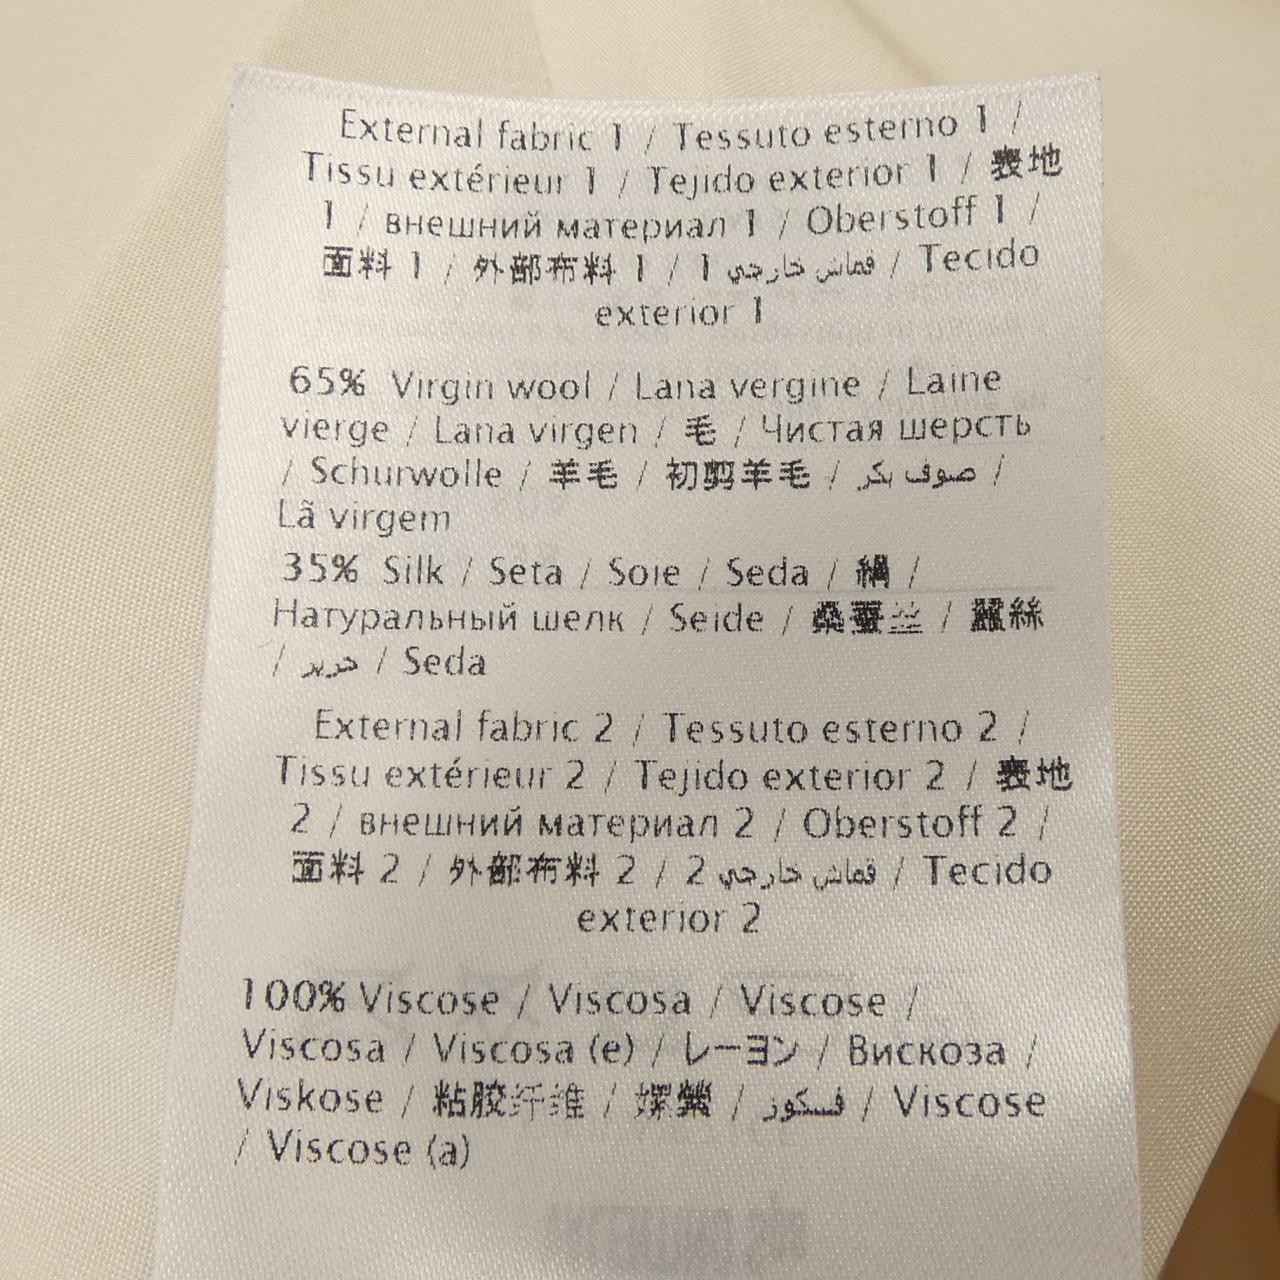 External fabric 1 / Tessuto esterno 1 /
Tissu extérieur 1 / Tejido exterior 1 / 表地
1 / внешний материал 1 / Oberstoff 1 /
面料 1 / 外部布料 1 / قماش خارجي 1 / Tecido
exterior 1
65% Virgin wool / Lana vergine / Laine
vierge / Lana virgen / 毛 / Чистая шерсть
/ Schurwolle / 羊毛 / 初剪羊毛 / صوف بكر /
Lã virgem
35% Silk / Seta / Soie / Seda / 絹 /
Натуральный шелк / Seide / 桑蚕丝 / 蠶絲
/ حرير / Seda
External fabric 2 / Tessuto esterno 2 /
Tissu extérieur 2 / Tejido exterior 2 / 表地
2 / внешний материал 2 / Oberstoff 2 /
面料 2 / 外部布料 2 / قماش خارجي 2 / Tecido
exterior 2
100% Viscose / Viscosa / Viscose /
Viscosa / Viscosa (e) / レーヨン / Вискоза /
Viskose / 粘胶纤维 / 嫘縈 / فسكوز / Viscose
/ Viscose (a)